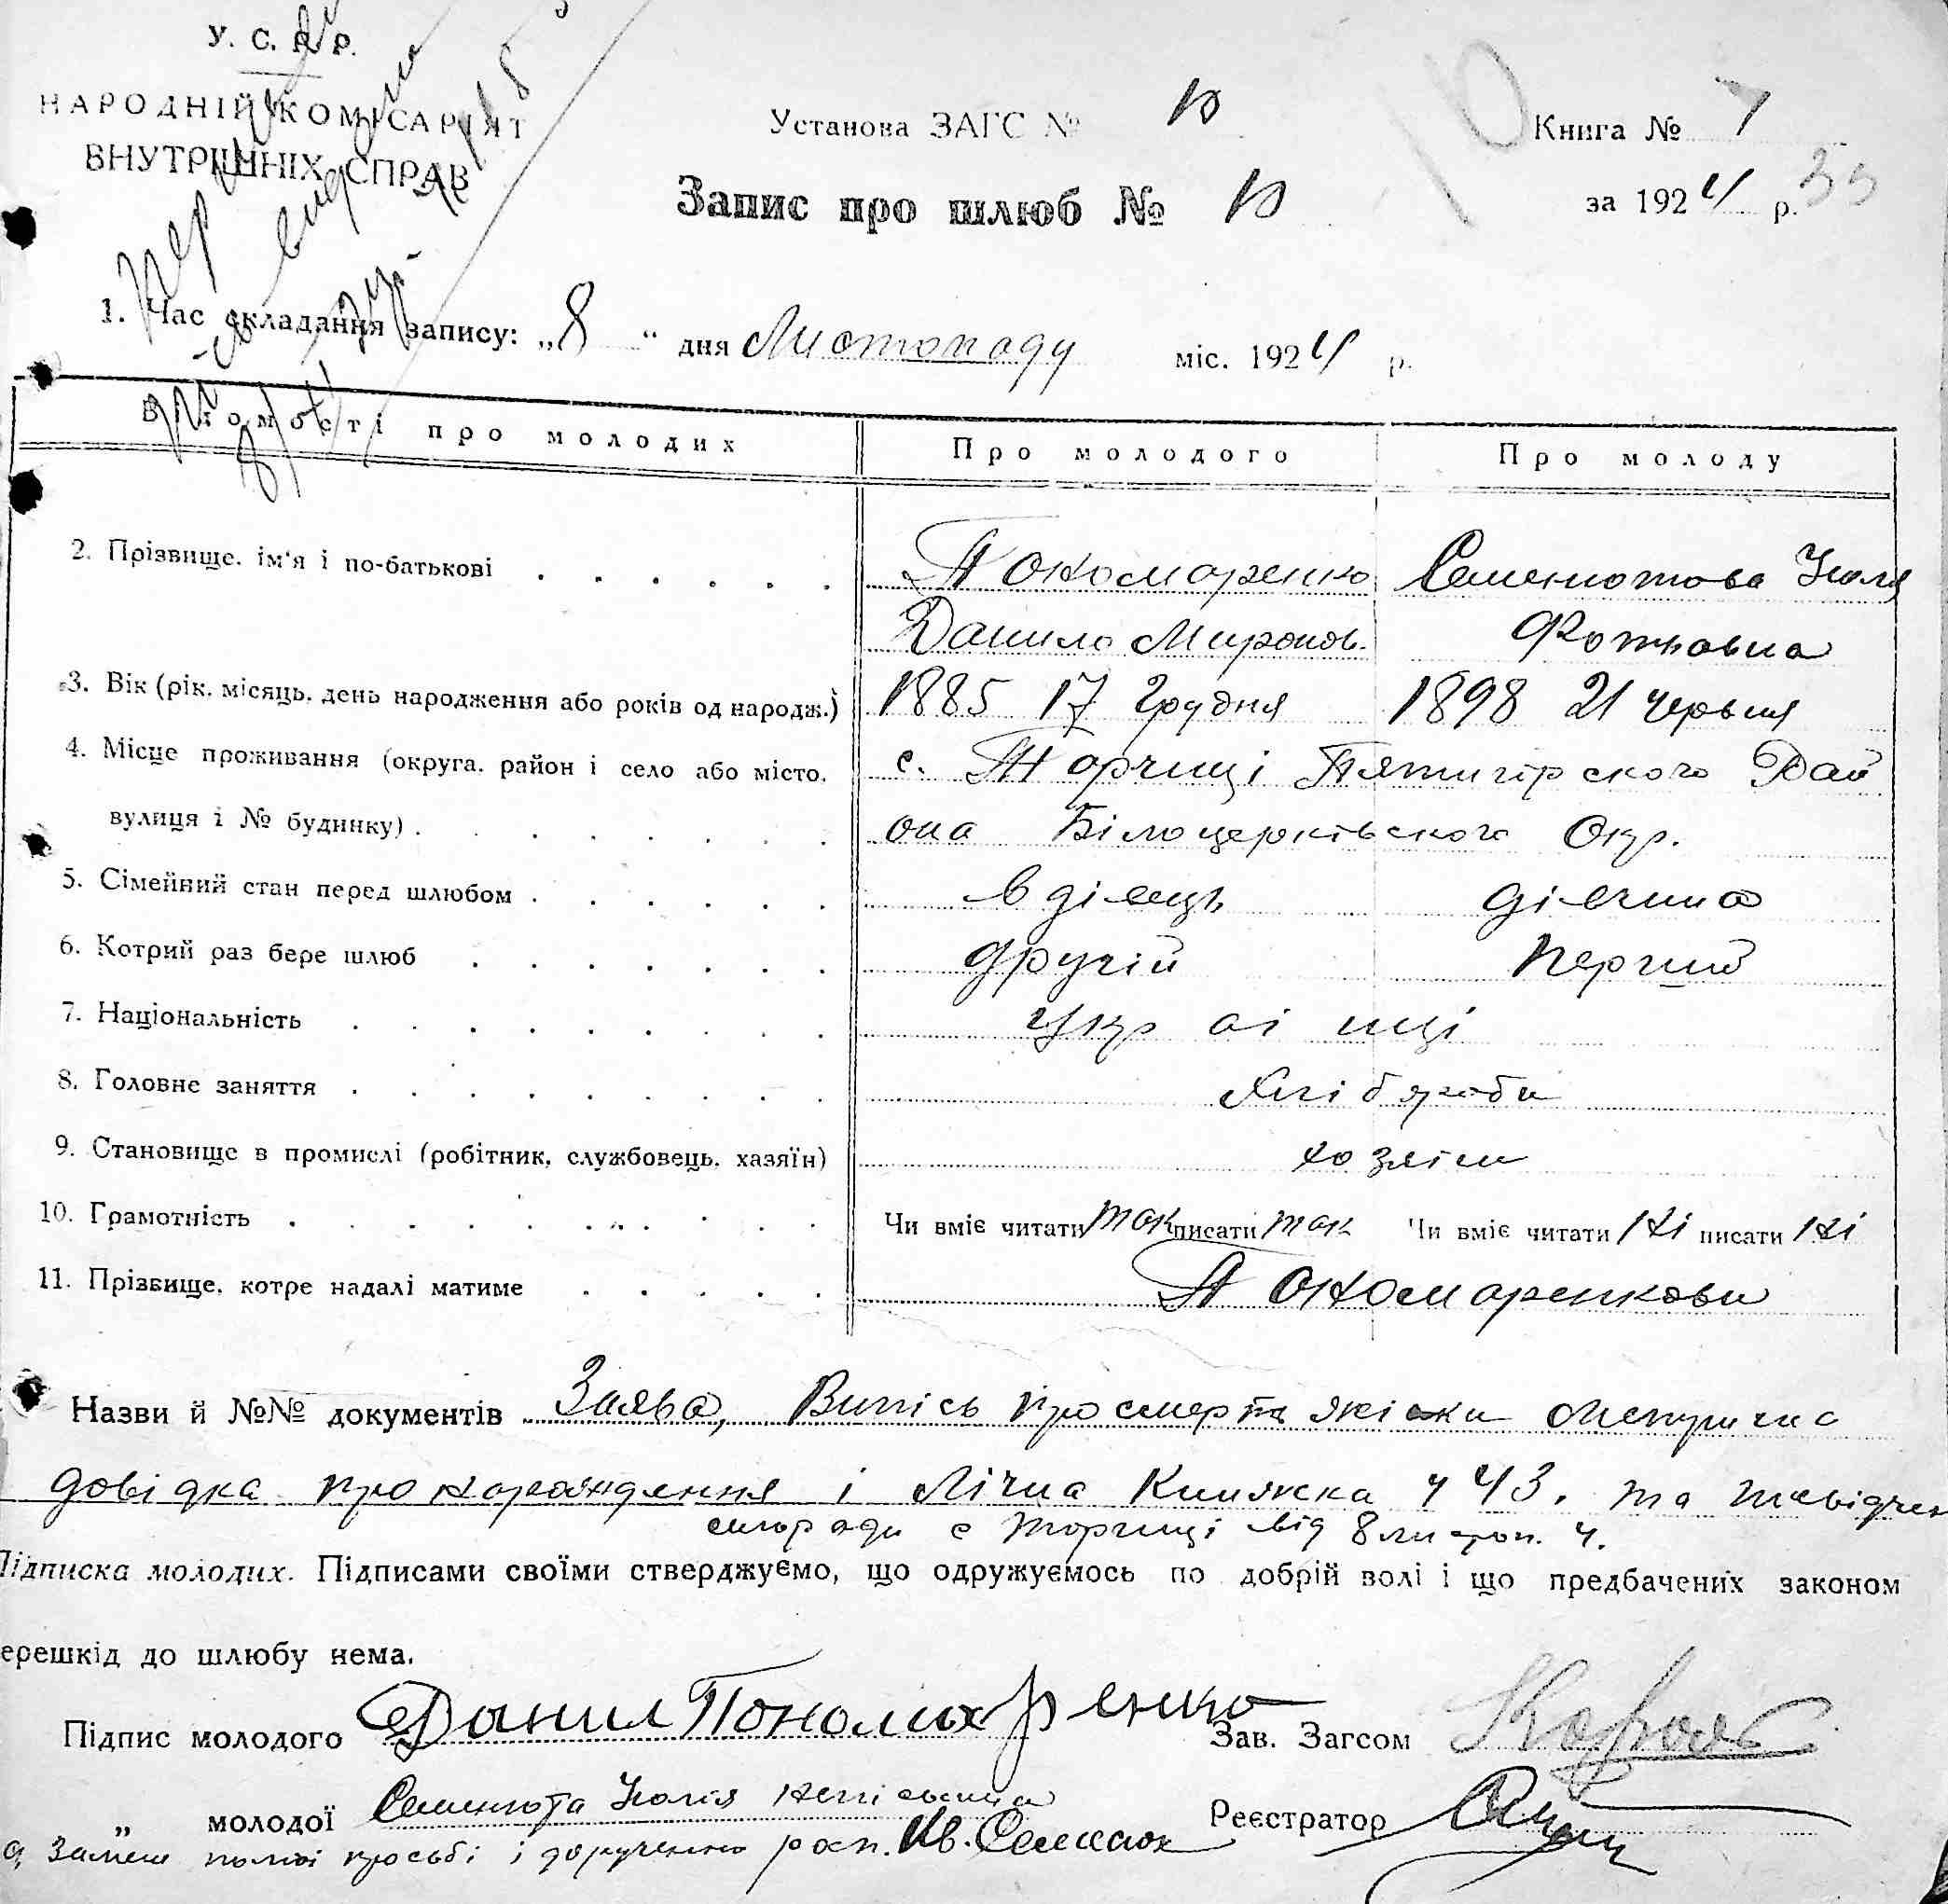 У. С. Р. Р.
НАРОДНІЙ КОМІСАРІЯТ
ВНУТРІШНІХ СПРАВ
Установа ЗАГС № 10
Книга № 1
Запис про шлюб № 10
за 1924 р. 35
1. Час складання запису: „8“ дня Листопаду міс. 1924 р.
Відомості про молодих Про молодого Про молоду
2. Прізвище, ім'я і по-батькові Пономаренко Семенютова Юлія
Данило Миронов. Фотіовна
3. Вік (рік, місяць, день народження або років од народж.) 1885 17 Грудня 1898 21 червня
4. Місце проживання (округа, район і село або місто, с. Торчиці Пятигірского Рай
вулиця і № будинку) она Білоцерківського Окр.
5. Сімейний стан перед шлюбом вдівець дівчина
6. Котрий раз бере шлюб другій первий
7. Національність Українці
8. Головне заняття Хліброби
9. Становище в промислі (робітник, службовець, хазяїн) хозяіни
10. Грамотність Чи вміє читати так писати так Чи вміє читати ні писати ні
11. Прізвище, котре надалі матиме Пономаренкови
Назви й №№ документів Заява, Випісь про смерть жінки
довідка про нарождення і Лічна Книжка Ч 43. та
сільради с Торчиці від 8 листоп. ч.
Підписка молодих. Підписами своїми стверджуємо, що одружуємось по добрій волі і що предбачених законом
ерешкід до шлюбу нема.
Підпис молодого Данил Пономаренко Зав. Загсом
„ молодої Семенюта Юлія непісьмена Реєстратор
просьбі і дорученню росп. Ив. Семенюк